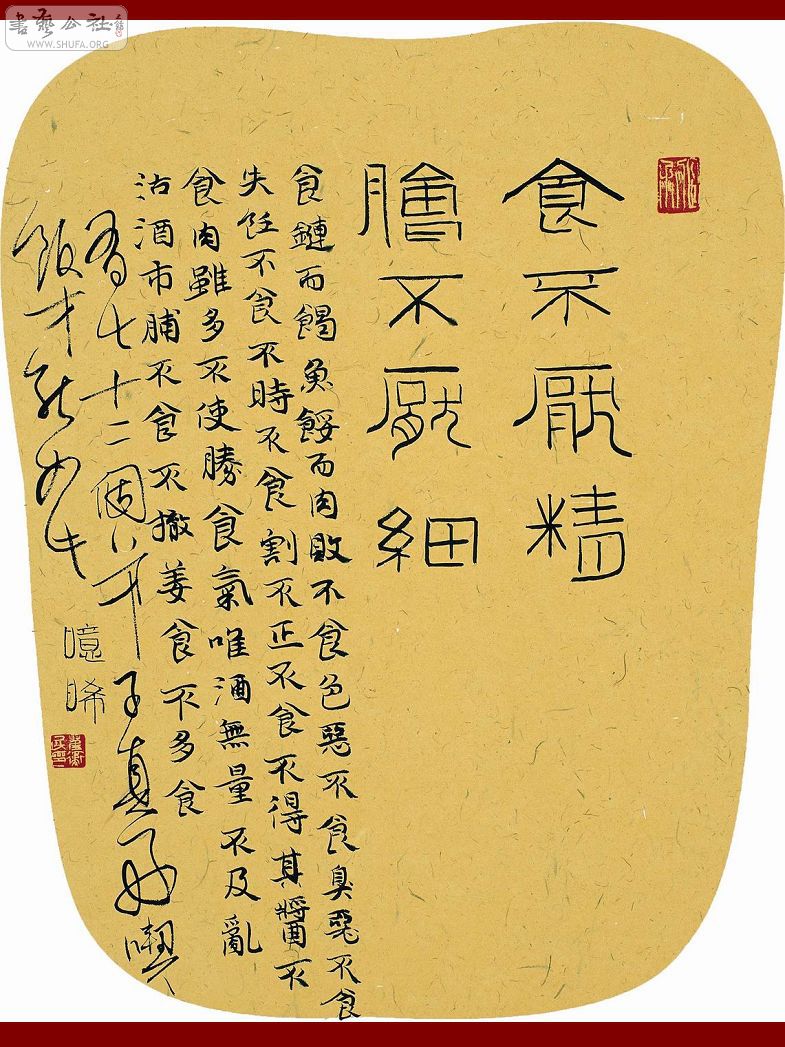 書藝公社
WWW.SHUFA.ORG
食不厭精
膾不厭細
食鏈而餲魚餒而肉敗不食色惡不食臭惡不食
失任不食不時不食割不正不食不得其醬不
食肉雖多不使勝食氣唯酒無量不及亂
沽酒市脯不食不撤姜食不多食
七十二個子真好
噫晞